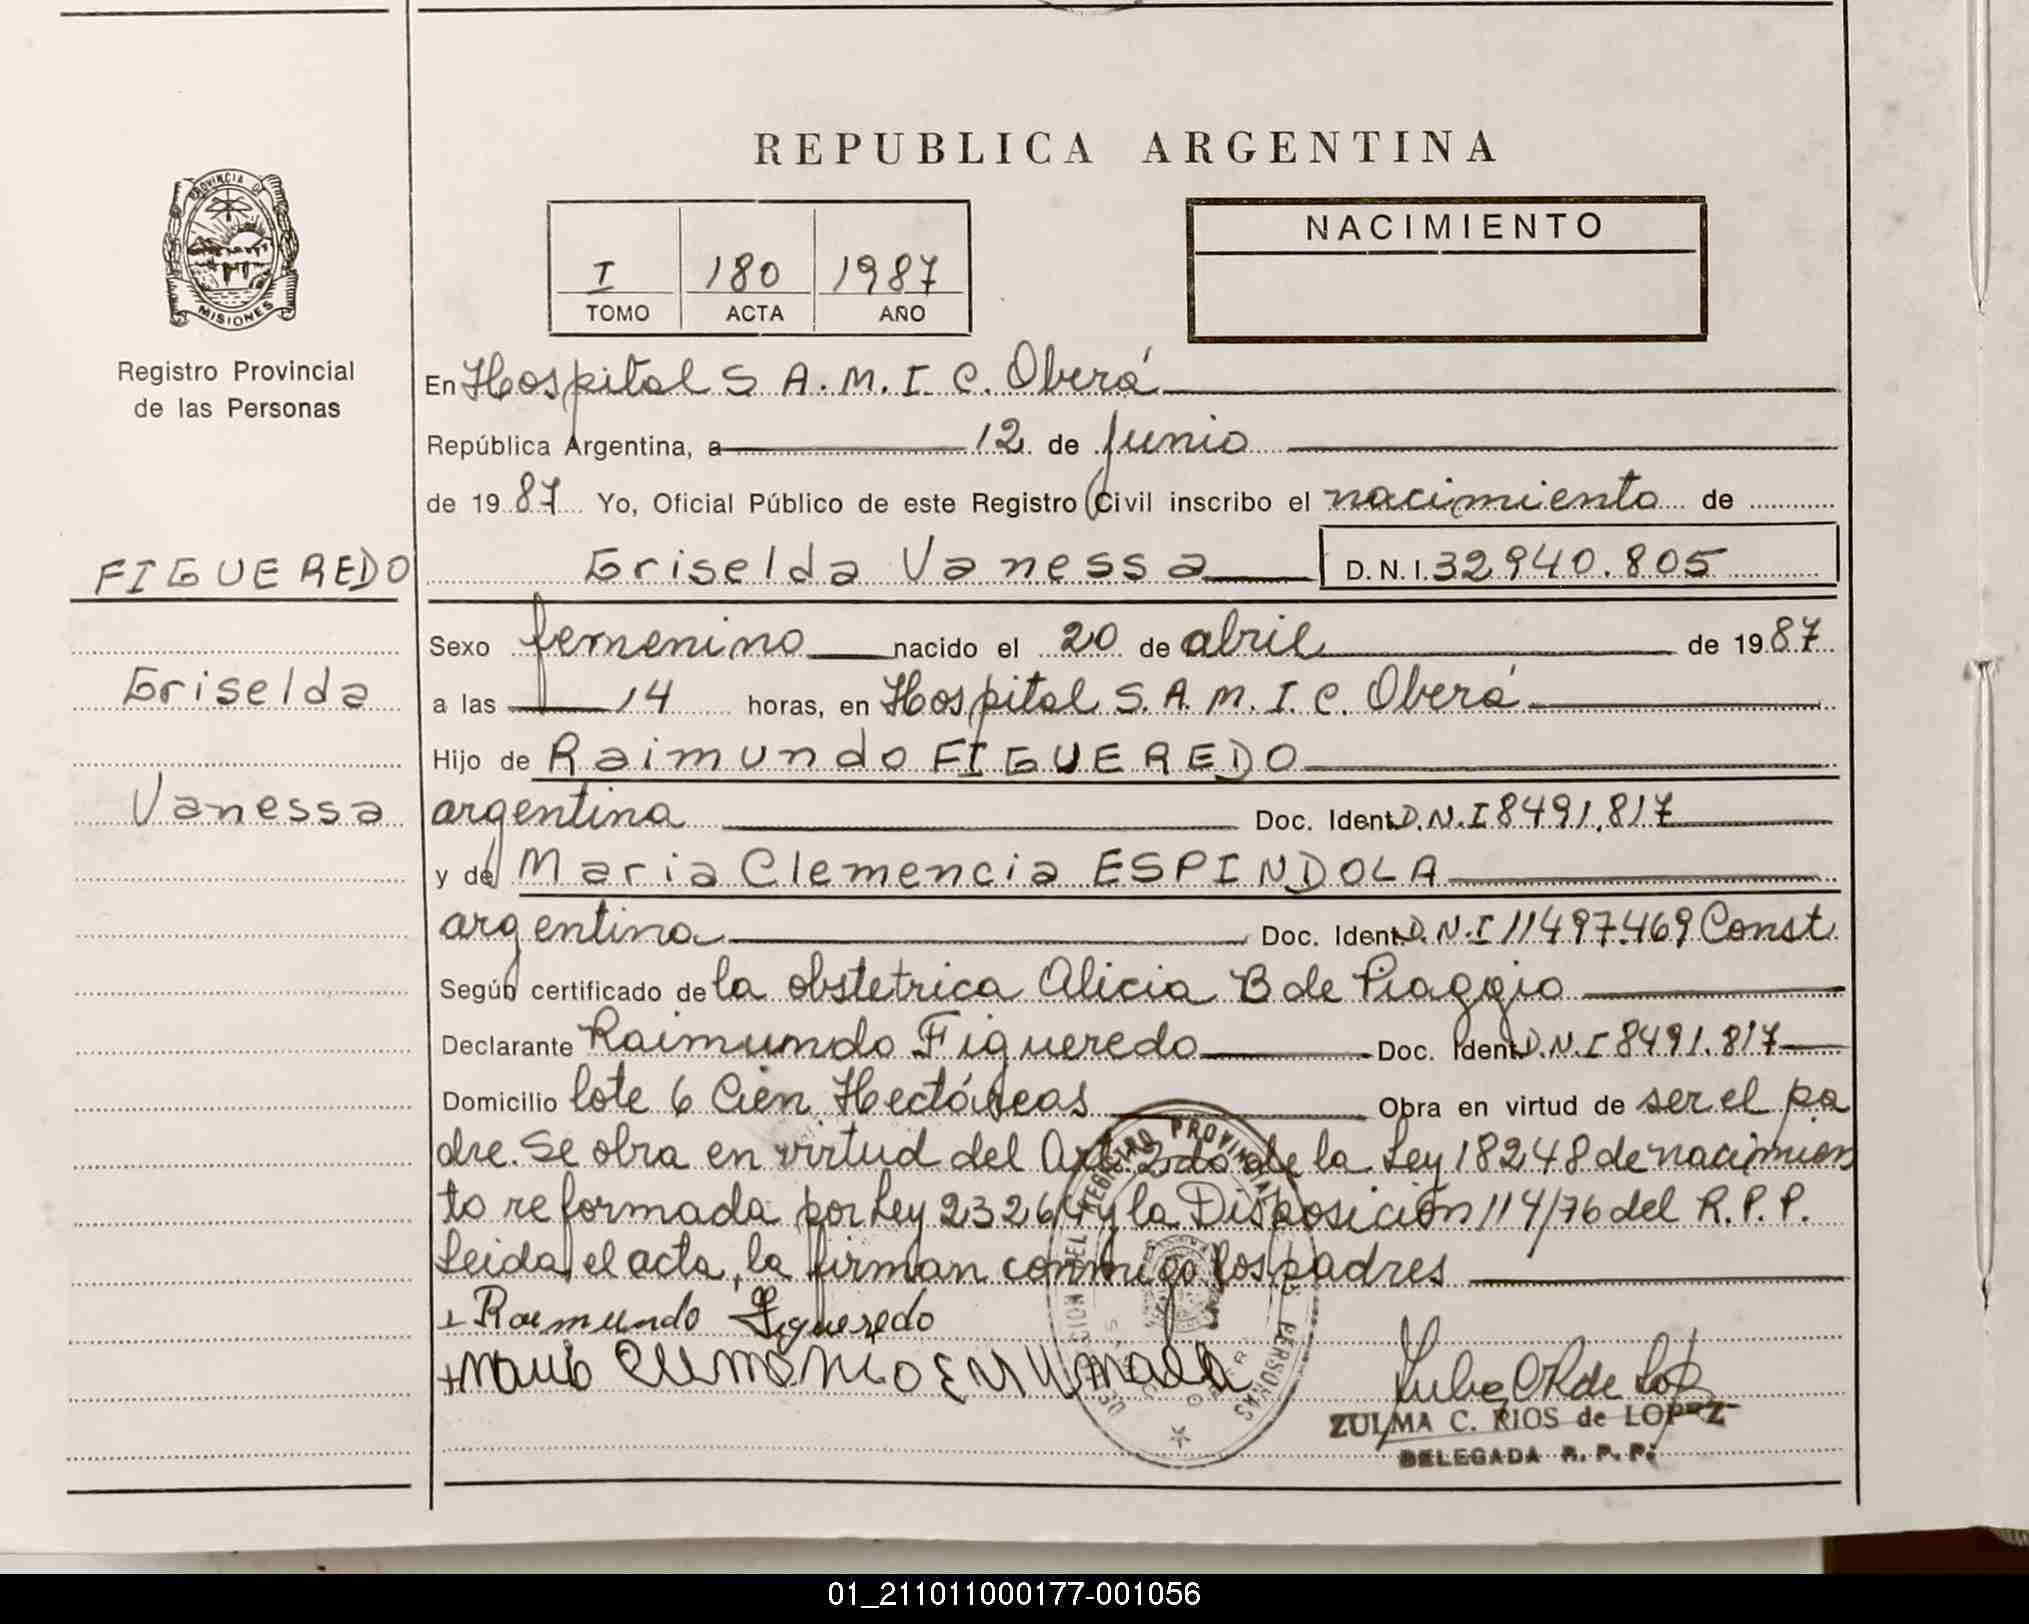 REPUBLICA ARGENTINA
PROVINCIA DE
MISIONES
Registro Provincial
de las Personas
I 180 1987
TOMO ACTA AÑO
NACIMIENTO
En Hospital S A. M. I. C. Oberá
República Argentina, a 12 de Junio
de 19 87 Yo, Oficial Público de este Registro Civil inscribo el nacimiento de
FIGUEREDO
Griselda Vanessa D.N.I. 32940.805
Sexo femenino nacido el 20 de abril de 19 87
Griselda
a las 14 horas, en Hospital S. A. M. I. C. Oberá
Hijo de Raimundo FIGUEREDO
Vanessa
argentina Doc. Ident. D.N.I 8491.817
y de Maria Clemencia ESPINDOLA
argentina Doc. Ident. D.N.I 11497.469 Const.
Según certificado de la obstetrica Alicia B de Piaggio
Declarante Raimundo Figueredo Doc. Ident. D.N.I 8491.817
Domicilio lote 6 Cien Hectáreas Obra en virtud de ser el pa
dre. Se obra en virtud del Art. 2do de la Ley 18248 de nacimien
to reformada por Ley 23264 y la Disposición 114/76 del R.P.P.
Leida el acta, la firman conmigo los padres
Raimundo Figueredo
ZULMA C. RIOS de LOPEZ
DELEGADA R. P. P.
01_211011000177-001056